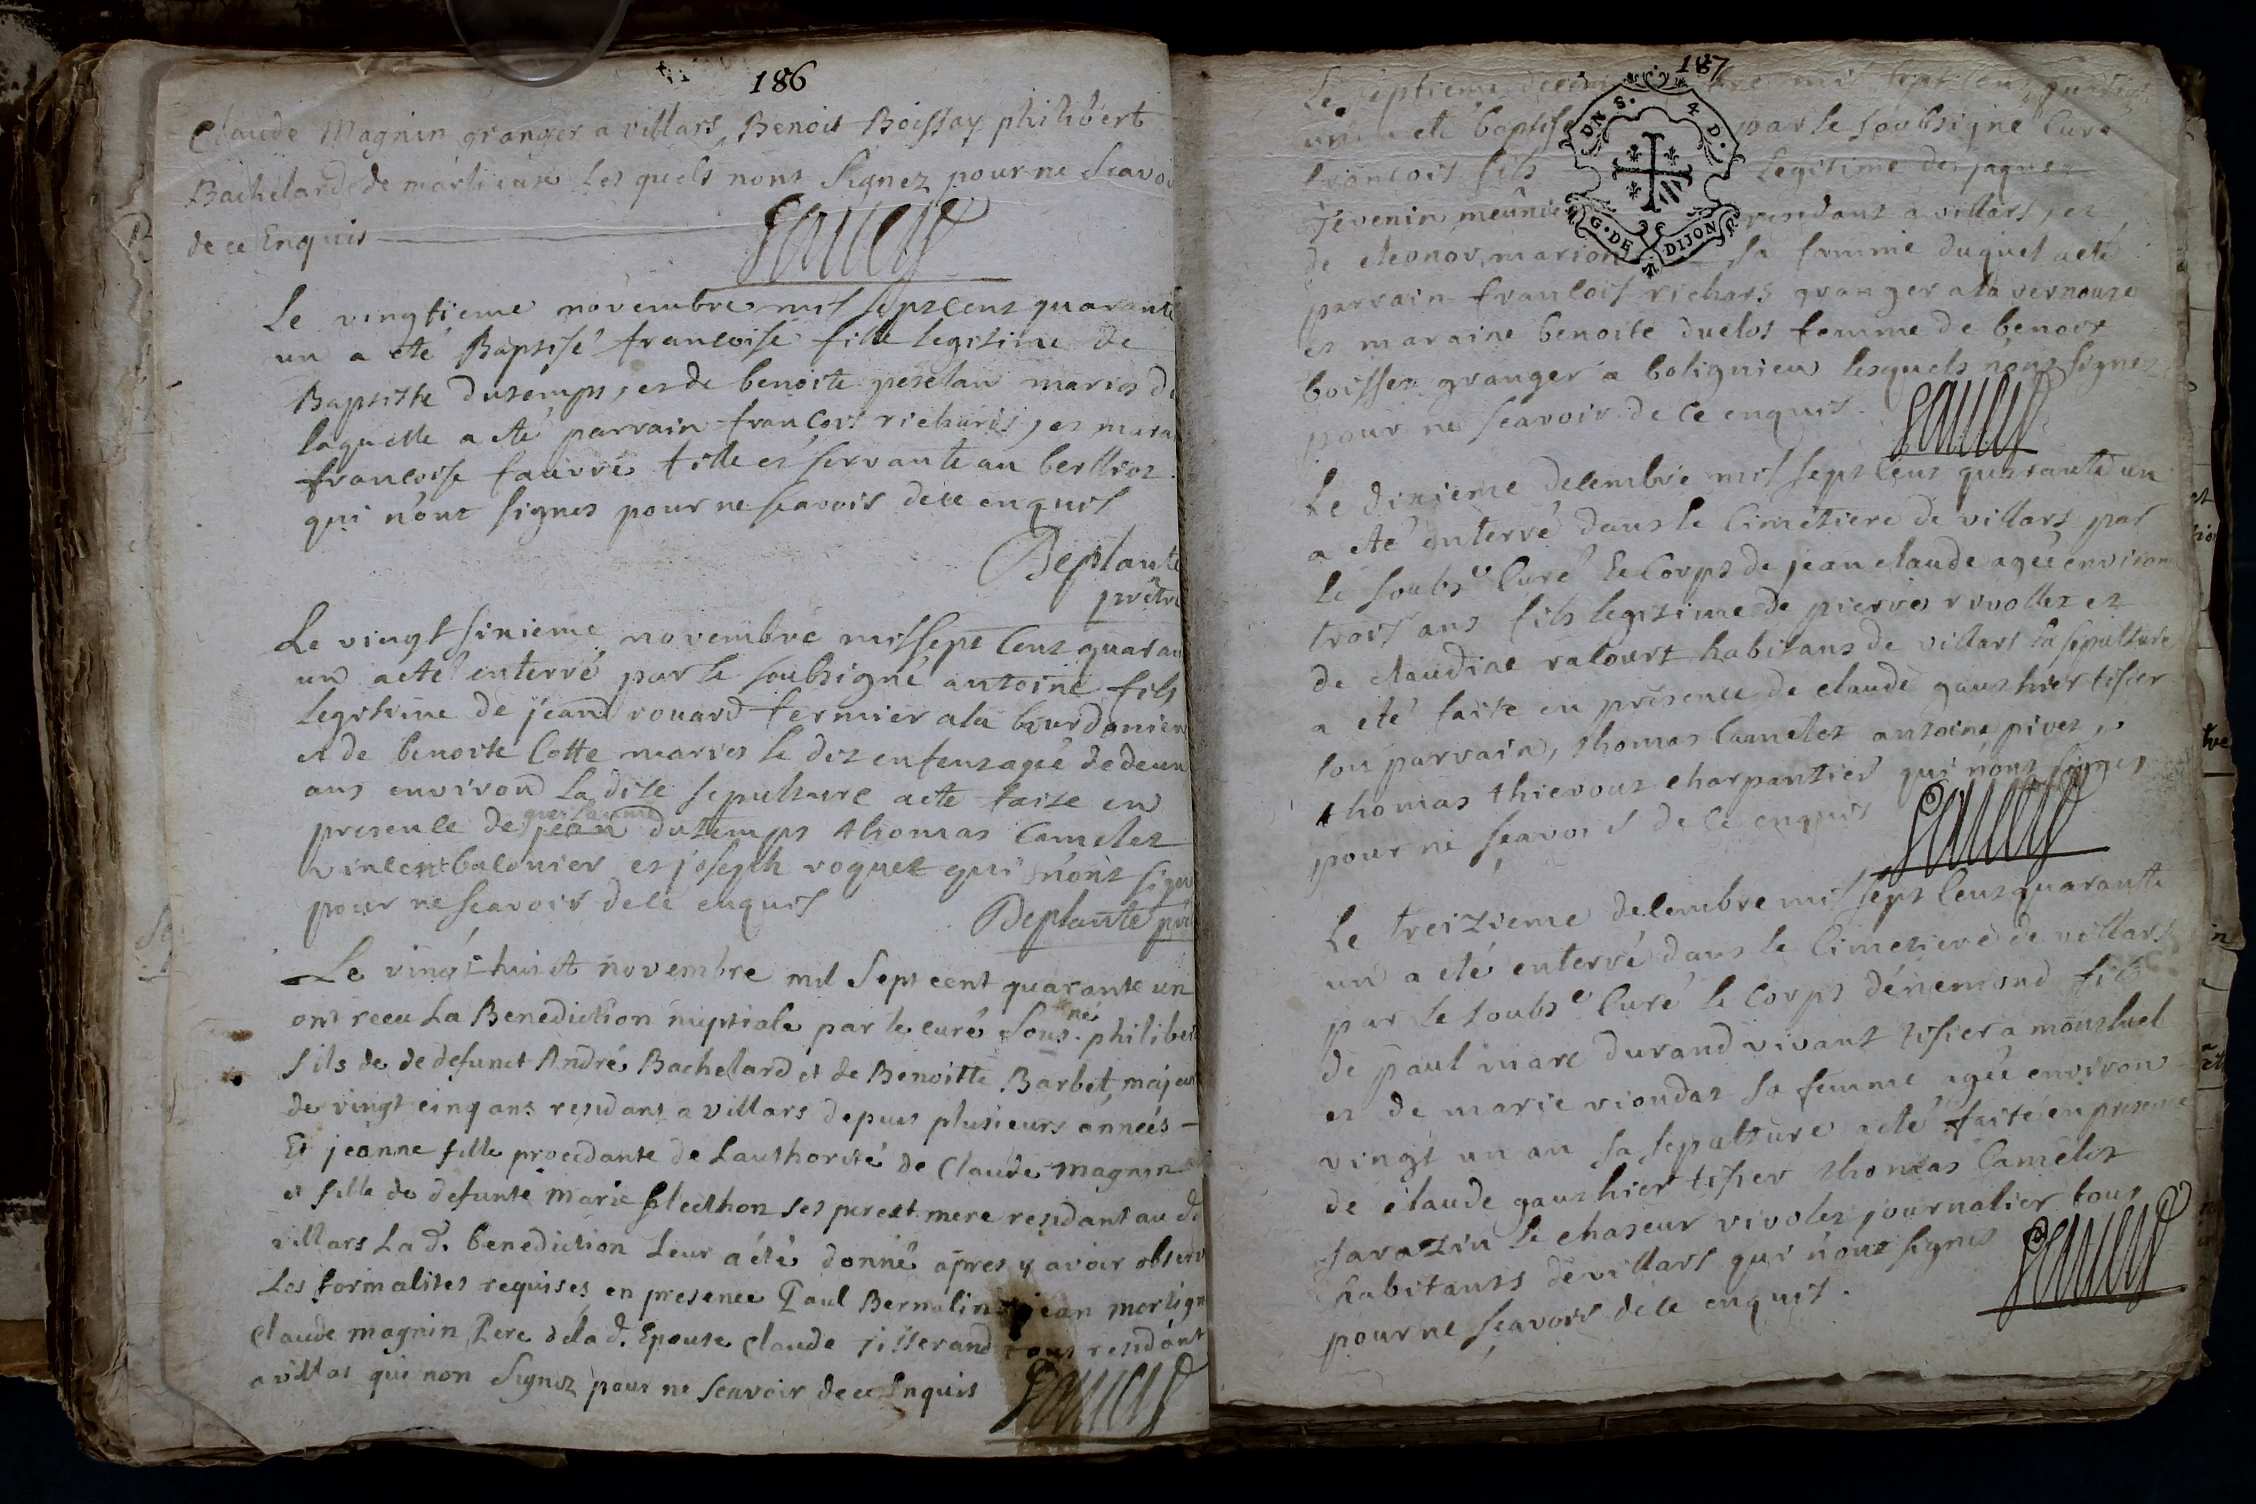 186
Claude Magnin granger a villars, Benoit Boissay philibert
Bachelard de marlieux Lesquels nont Signez pour ne Scavoi
de ce Enquis
Le vingtieme novembre mil sept cent quarante
un a eté Baptisé francoise fille legitime de
Baptiste dutemps, et de benoite mariés de
laquelle a eté parrain françois richard, et mara
francoise fauvre fille et servante au
qui n'ont signes pour ne scavoir de ce enquis
Deplante
prêtre
Le vingt sixieme novembre mil sept cent quaran
un a eté enterré par le soubsigné antoine fils
legitime de jean rouard fermier a la bourdonier
et de benoite Cotte mariés le dit enfent agé de deux
ans environ La dite sepulture a eté faite en
presence de jean dutemps thomas Camelet
vincent balonier et joseph roquet qui n'ont sign
pour ne scavoir de ce enquis
Deplante prê
Le vingt huict novembre mil Sept cent quarante un
ont receu La Benediction nuptiale par le curé Sous.né philiber
fils de de defunct André Bachelard et de Benoitte Barbet, majeur
de vingt cinq ans residant a villars depuis plusieurs années
Et jeanne fille procedante de Lauthorité de Claude magnin
et fille de defunte marie ses pere et mere residant au d.
villars La d. benediction Leur a été donné apres y avoir observ
Les formalites requises en presence Paul Bernalin jean
Claude magnin Pere de la d. Epouse Claude tisserand tous residant
a villas qui non Signez pour ne Scavoir de ce Enquis
187
DNS. 4 D.
G. DE DIJON
Le septieme mil sept cent
un a eté baptisé par le soubsigné Curé
françois fils legitime de jaque
Tevenin meunier residant a villars, et
de eleonor marion sa femme duquel a eté
parrain francois richard granger a la vernouse
et maraine benoite duclos femme de benoit
boisset granger a bolignieu lesquels n'ont signes
pour ne scavoir de ce enquis.
Le dixieme decembre mil sept cent quarante un
a eté enterré dans le Cimétiere de villars par
le soubs.é Curé Le Corps de jean claude agé environ
trois ans fils legitime de pierre rivollet et
de claudine ratourt habitans de villars la sepulture
a eté faite en presence de claude gauthier tisier
son parrain, thomas Camelet antoine pivet,
thomas thievout charpantier qui n'ont signes
pour ne scavoir de ce enquis
Le treizieme decembre mil sept cent quarante
un a eté enterré dans le Cimetiere de villars
par le soubs.é Curé le Corps d'énemond fils
de paul marc durand vivant tisier a montluel
et de marie viondat sa femme agé environ
vingt un an sa sepulture a eté faite en presence
de claude gauthier tisier thomas Camelet
sarazin le chaseur vivolet journalier tous
habitants de villars qui n'ont signes
pour ne scavoir de ce enquis.